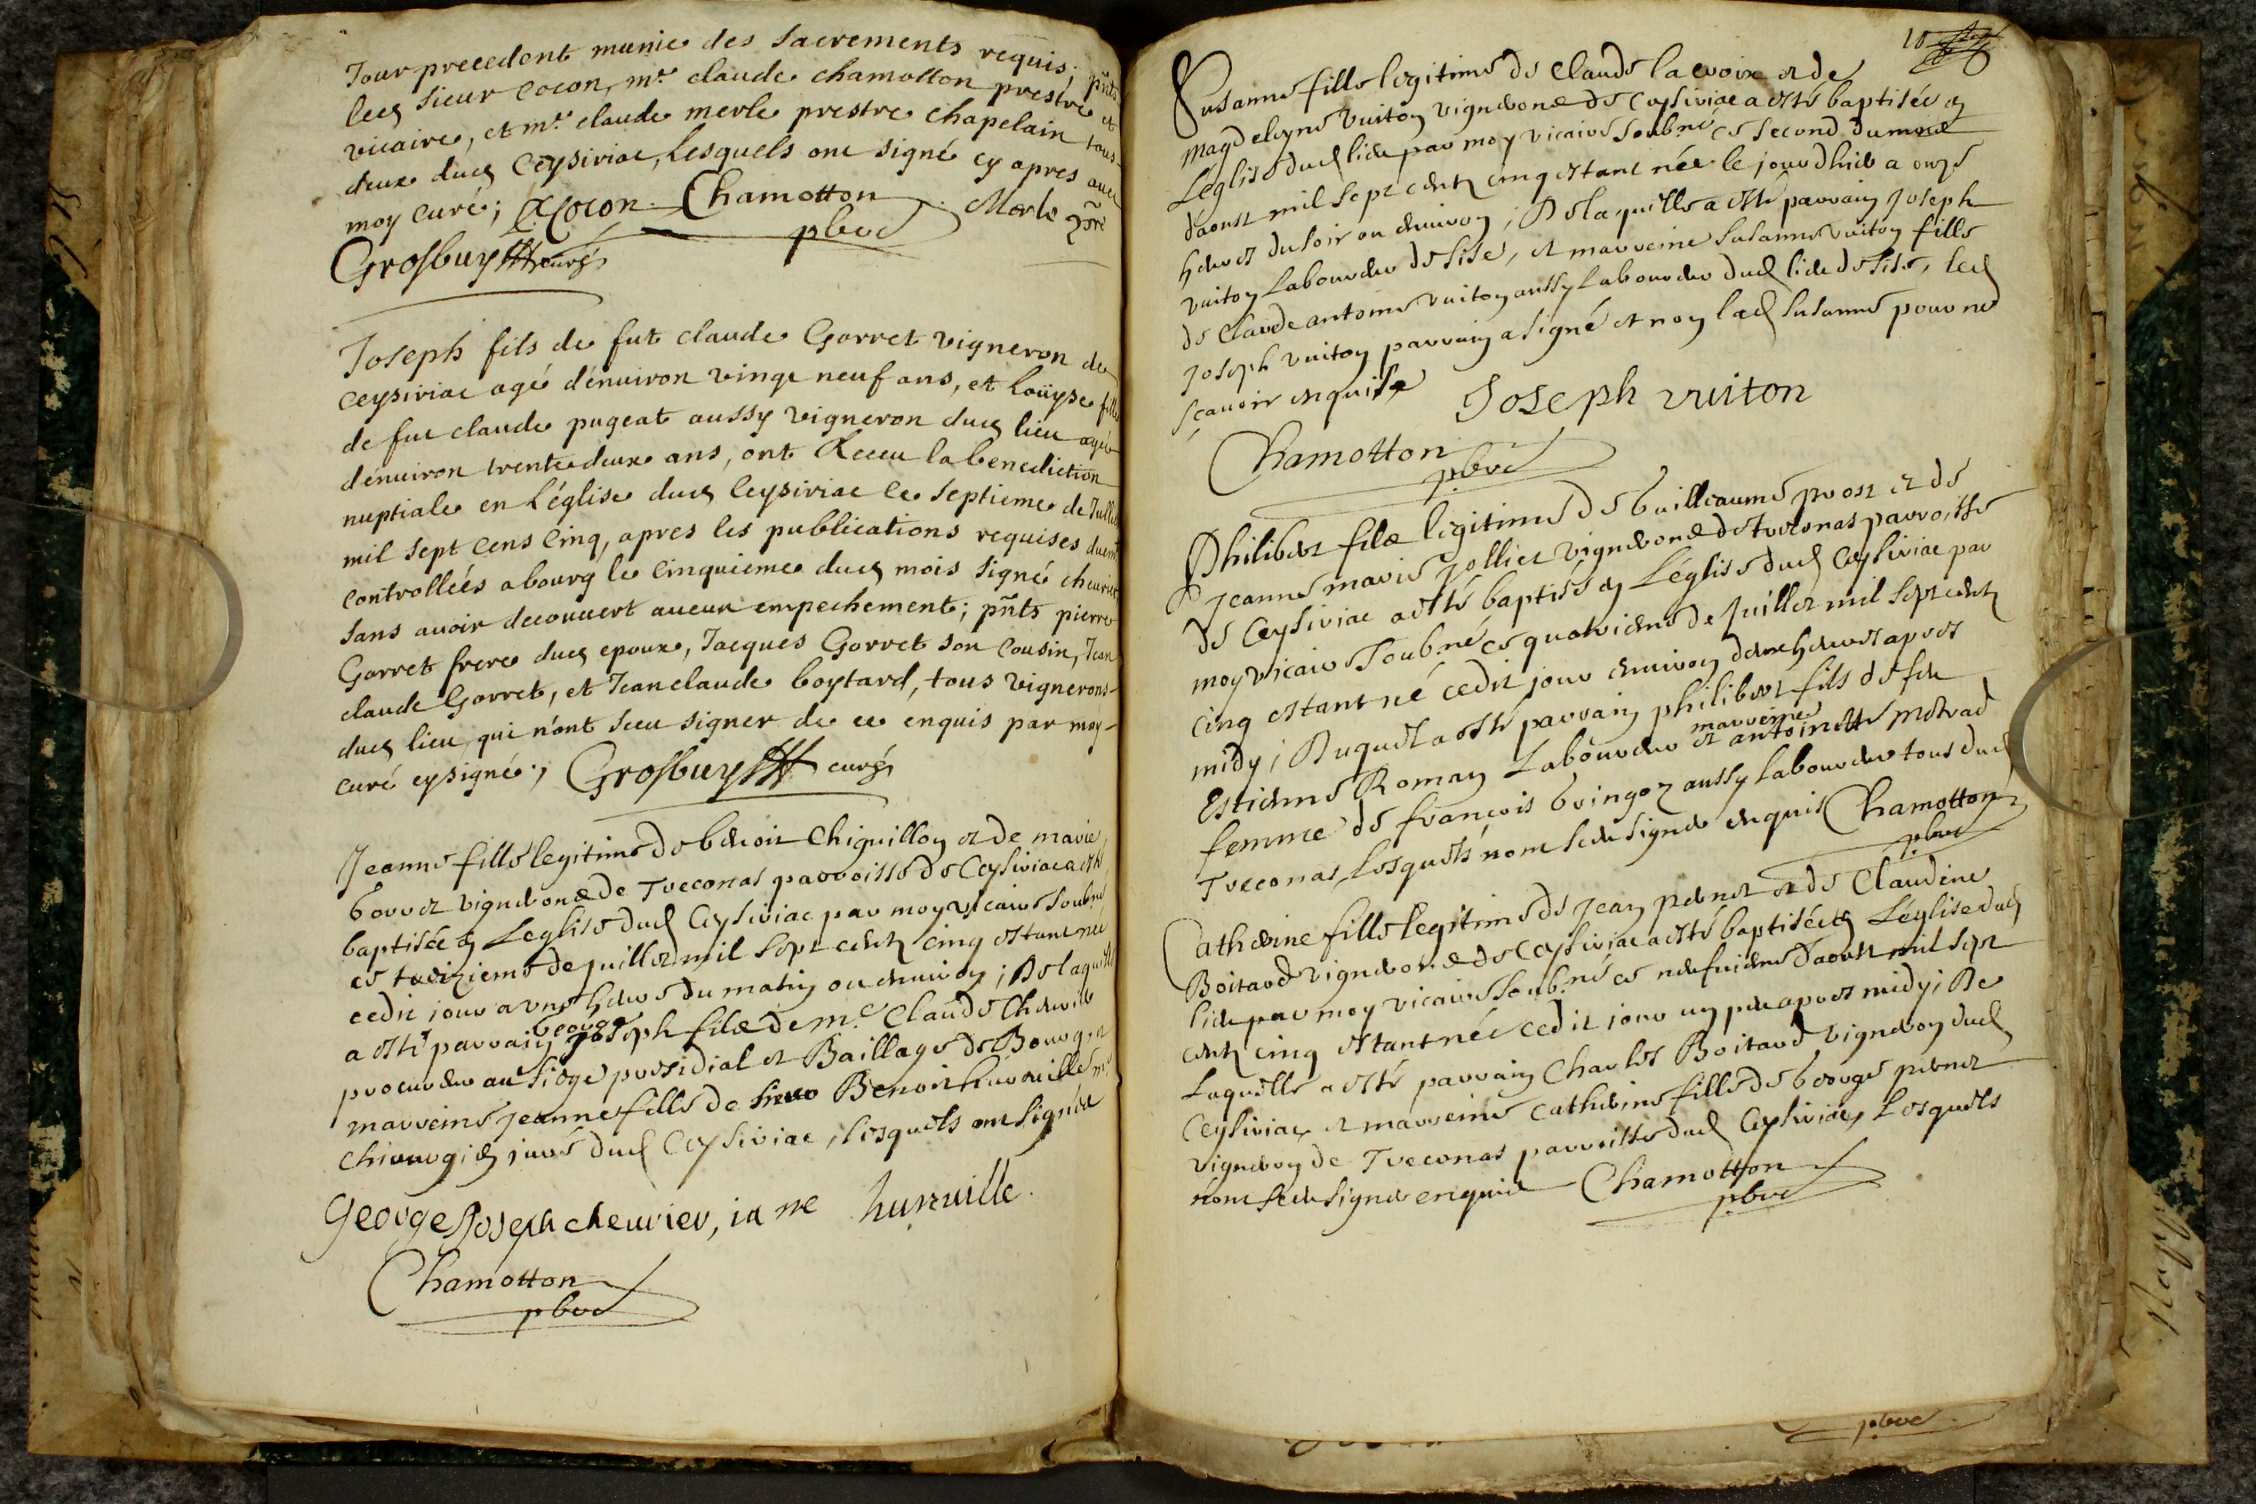 Jour precedent munie des sacrements requis; pñts
led sieur Cocon, mr. claude chamotton prestre et
vicaire, et mr. claude merle prestre chapelain tous
deux dud Ceysiriac, Lesquels ont signé cy apres avec
moy curé; Cocon. Chamotton pbre Merle
Grosbuy curé
Joseph fils de fut claude Gorret vigneron de
Ceysiriac agé d'enuiron vingt neuf ans, et Loüyse fille
de fut claude pugeat aussy vigneron dud lieu agée
d'enuiron trente deux ans, ont Receu la benediction
nuptiale en L'église dud Ceysiriac Le Septieme de Juillet
mil sept Cens Cinq, apres les publications requises duemt
controllées a bourg le Cinquieme dud mois signé cheurier
sans auoir decouuert aucun empechement; pñts pierre
Gorret frere dud epoux, Jacques Gorret son Cousin, Jean
claude Gorret, et Jean claude boytard, tous vignerons
dud lieu, qui n'ont sceu signer de ce enquis par moy
curé cysigné; Grosbuy curé
Jeanne fille legitime de benoit Chiquillon et de marie
borret vignerons de Treconas parroisse de Ceysiriac a esté
baptisée en Leglise dud Ceysiriac par moy vicaire soubné
ce treiziéme de juillet mil sept cents cinq estant née
cedit jour a une heure du matin ou enuiron; De laquelle
a esté parrain george
Joseph fils de me. Claude Cheurier
procureur au siege presidial et Baillage de Bourg et
marreine jeanne fille de sieur Benoit hurauille mre
chirurgien juré dud Ceysiriac, lesquels ont signés
George Joseph cheurier, ia ne huruille.
Chamotton
pbre
10
Susanne fille legitime de Claude la croix et de
magdeleyne vuiton vignerons de Ceysiriac a esté baptisée en
L'église dud lieu par moy vicaire soubné ce second du mois
d'aoust mil sept cents cinq estant née le jour d'hier a onze
heures du soir ou enuiron; De laquelle a esté parrain Joseph
vuiton Laboureur de sise, et marreine susanne vuiton fille
de Claude antoine vuiton aussy Laboureur dud lieu de sise, led
joseph vuiton parrain a signé et non lad susanne pour ne
sçauoir enquise Joseph vuiton
Chamotton
pbre
Philibert fils legitime de Guilleaume prost et de
jeanne marie jolliet vignerons de treconas parroisse
de Ceysiriac a esté baptisé en L'église dud Ceysiriac par
moy vicaire soubné ce quatriéme de juillet mil sept cents
cinq estant né cedit jour enuiron deux heures apres
midy; Duquel a esté parrain philibert fils de feu
Estienne Roman Laboureur et marreine antoinette
femme de françois bringoz aussy laboureur tous dud
Treconas, Lesquels n'ont sceu signer enquis Chamotton
pbre
Catherine fille legitime de jean perret et de Claudine
Boitard vignerons de Ceysiriac a esté baptisée en L'église dud
lieu par moy vicaire soubné ce neufuiéme d'aoust mil sept
cents cinq estant née cedit jour un peu apres midy; De
Laquelle a esté parrain Charles Boitard vigneron dud
Ceysiriac, et marreine catherine fille de george perret
vigneron de Treconas parroisse dud Ceysiriac, Lesquels
n'ont sceu signer enquis Chamotton
pbre
pbre